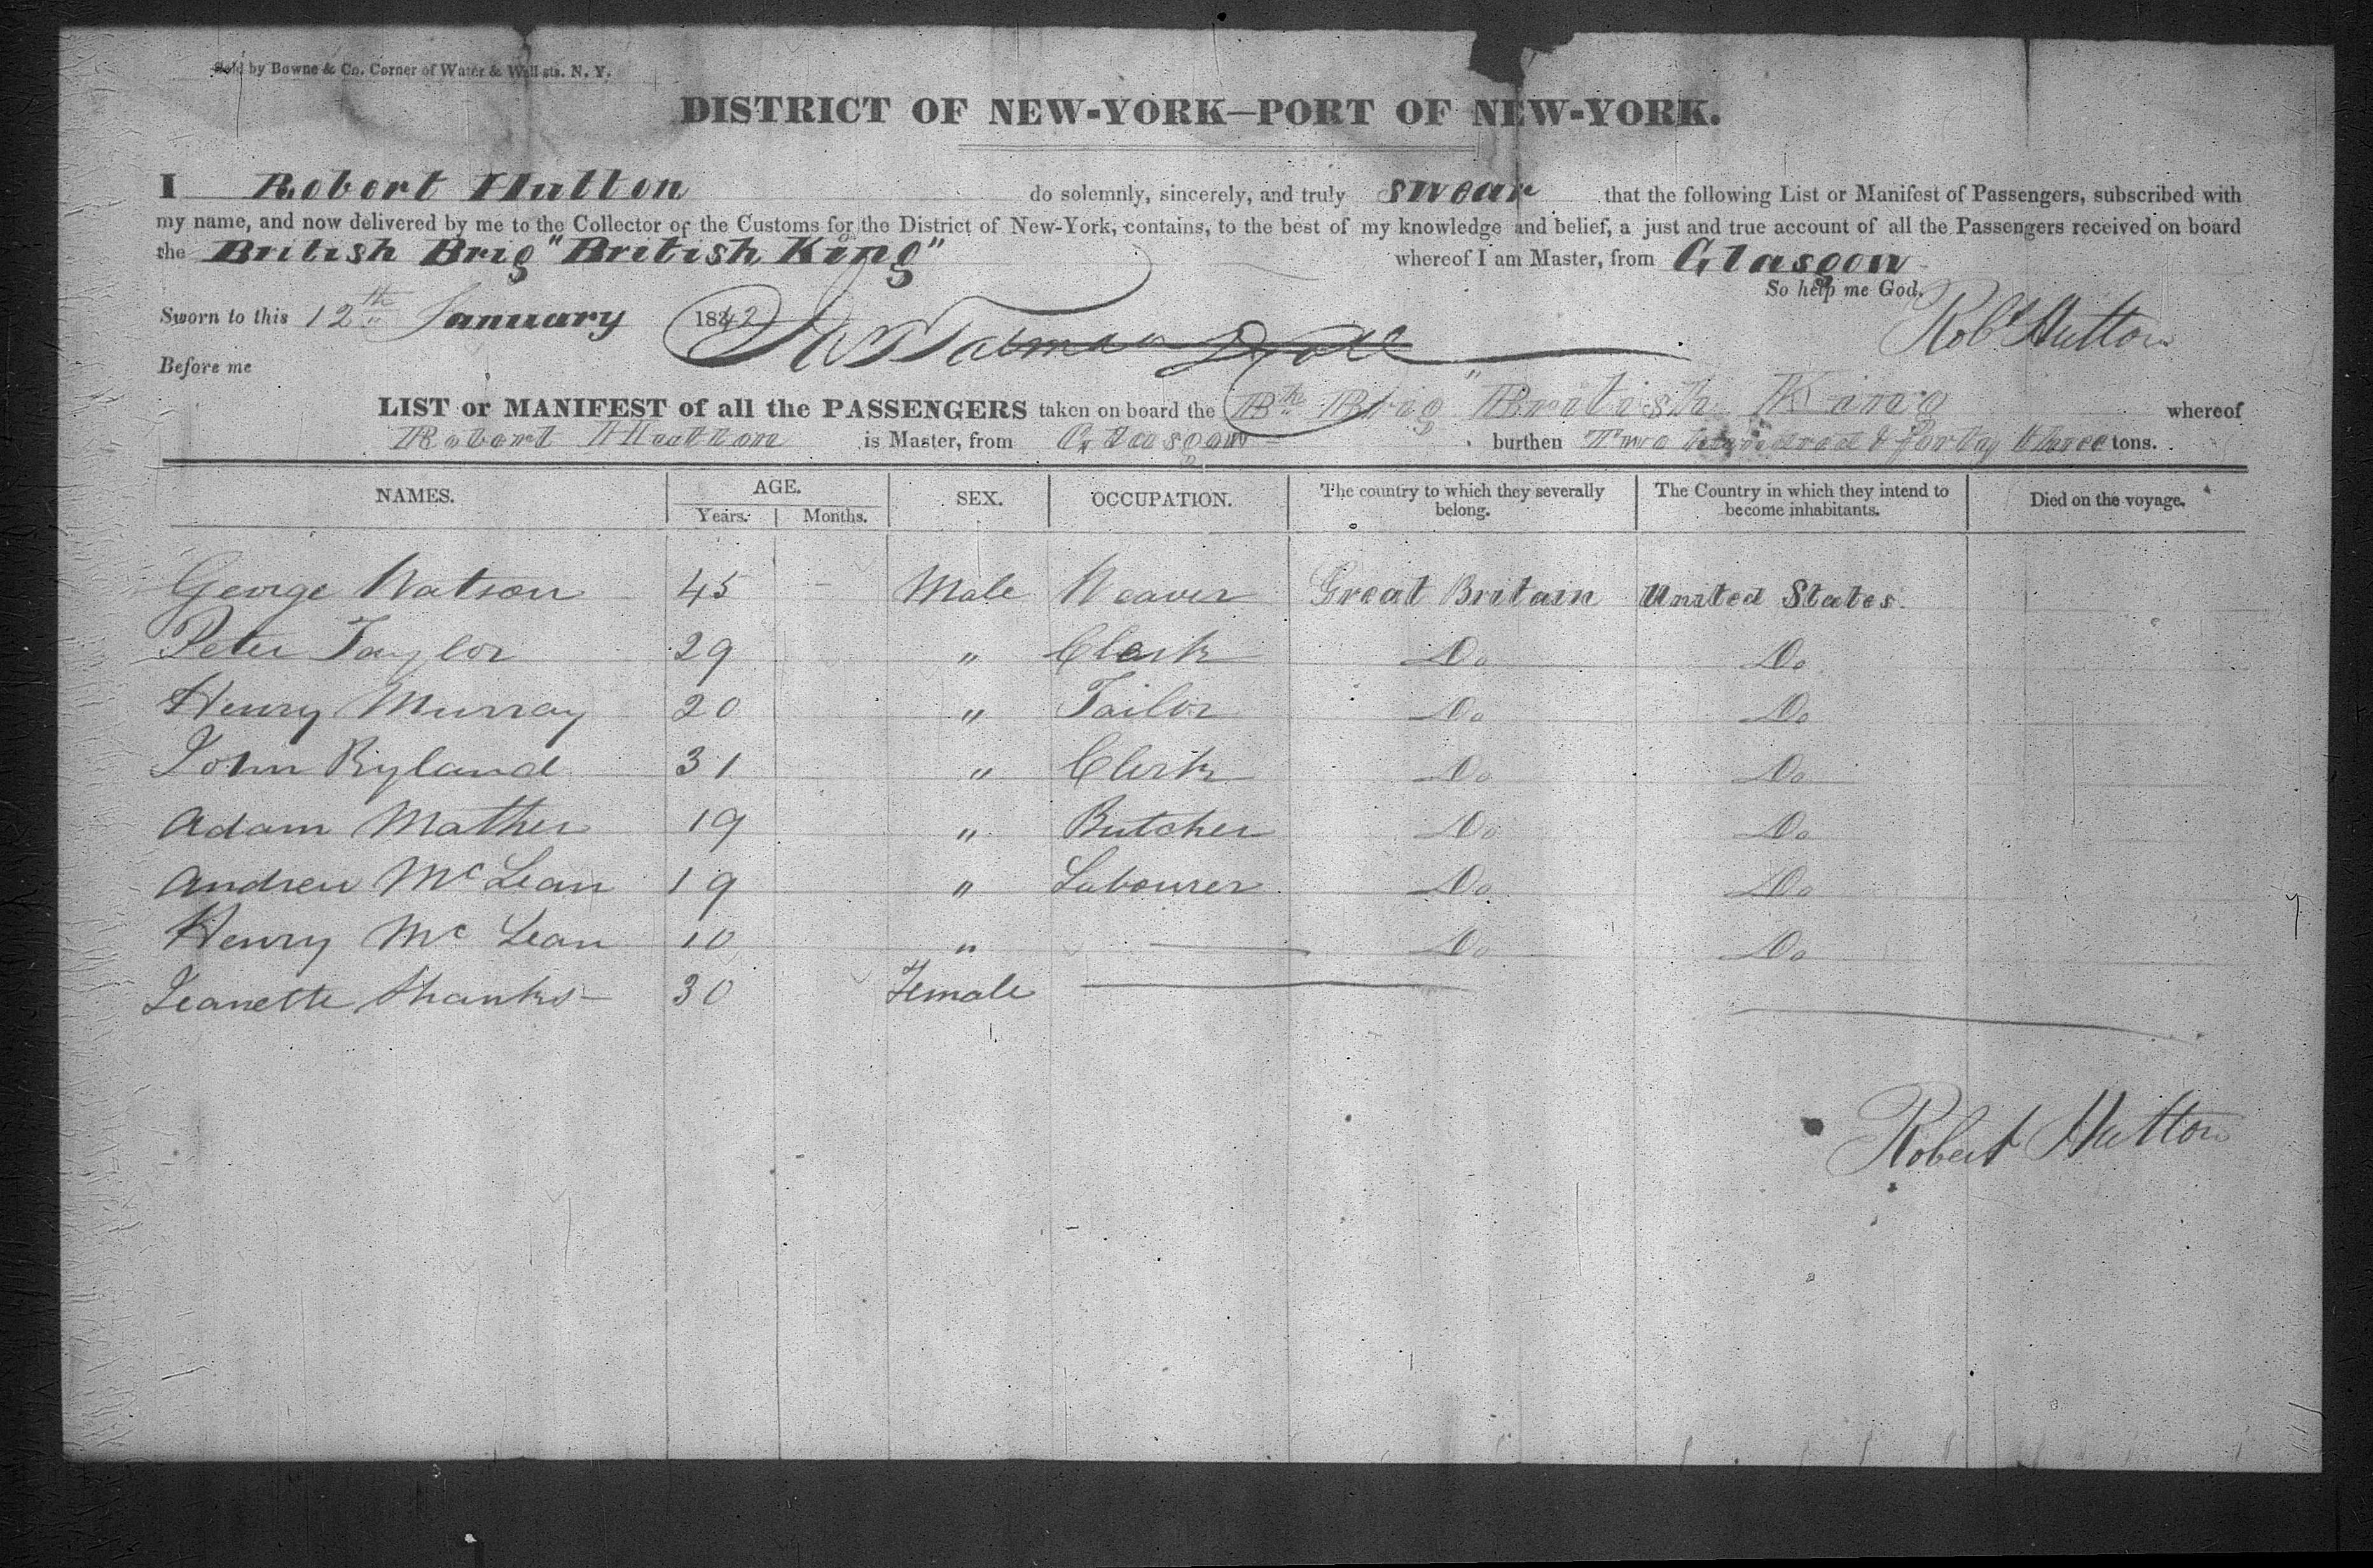 Sold by Bowne & Co. Corner of Water & Wall sts. N. Y.
DISTRICT OF NEW-YORK—PORT OF NEW-YORK.
I Robert Hutton do solemnly, sincerely, and truly swear that the following List or Manifest of Passengers, subscribed with
my name, and now delivered by me to the Collector of the Customs for the District of New-York, contains, to the best of my knowledge and belief, a just and true account of all the Passengers received on board
the British Brig "British King" whereof I am Master, from Glasgow
So help me God.
Sworn to this 12th January 1842 Robt Hutton
Before me
LIST or MANIFEST of all the PASSENGERS taken on board the Brig "British King whereof
Robert Hutton is Master, from Glasgow burthen Two hundred & forty three tons.
NAMES. AGE. SEX. OCCUPATION. The country to which they severally belong. The Country in which they intend to become inhabitants. Died on the voyage.
Years. Months.
George Watson 45 – Male Weaver Great Britain United States.
Peter Taylor 29 " Clerk Do Do
Henry Murray 20 " Tailor Do Do
John Ryland 31 " Clerk Do Do
Adam Mather 19 " Butcher Do Do
Andrew McLean 19 " Labourer Do Do
Henry McLean 10 " — Do Do
Jeanette Shanks 30 Female —
Robert Hutton